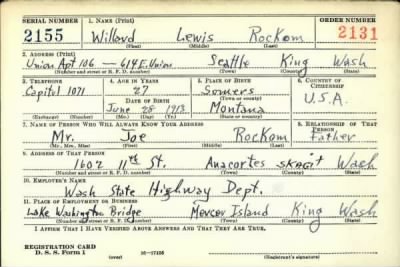 SERIAL NUMBER 1. NAME (Print) ORDER NUMBER
2155 Willard Lewis Rockom 2131
(First) (Middle) (Last)
2. ADDRESS (Print)
Union Apt 106 — 614 E. Union Seattle King Wash
(Number and street or R. F. D. number) (Town) (County) (State)
3. TELEPHONE 4. AGE IN YEARS 5. PLACE OF BIRTH 6. COUNTRY OF CITIZENSHIP
Capitol 1071 27 Somers
DATE OF BIRTH (Town or county) U.S.A.
June 28 1913 Montana
(Exchange) (Number) (Mo.) (Day) (Yr.) (State or country)
7. NAME OF PERSON WHO WILL ALWAYS KNOW YOUR ADDRESS 8. RELATIONSHIP OF THAT PERSON
Mr. Joe Rockom Father
(Mr., Mrs., Miss) (First) (Middle) (Last)
9. ADDRESS OF THAT PERSON
1602 11th St. Anacortes SKAGIT Wash
(Number and street or R. F. D. number) (Town) (County) (State)
10. EMPLOYER'S NAME
Wash State Highway Dept.
11. PLACE OF EMPLOYMENT OR BUSINESS
Lake Washington Bridge Mercer Island King Wash
(Number and street or R. F. D. number) (Town) (County) (State)
I AFFIRM THAT I HAVE VERIFIED ABOVE ANSWERS AND THAT THEY ARE TRUE.
REGISTRATION CARD
D. S. S. Form 1 (over) 16—17105 (Registrant's signature)